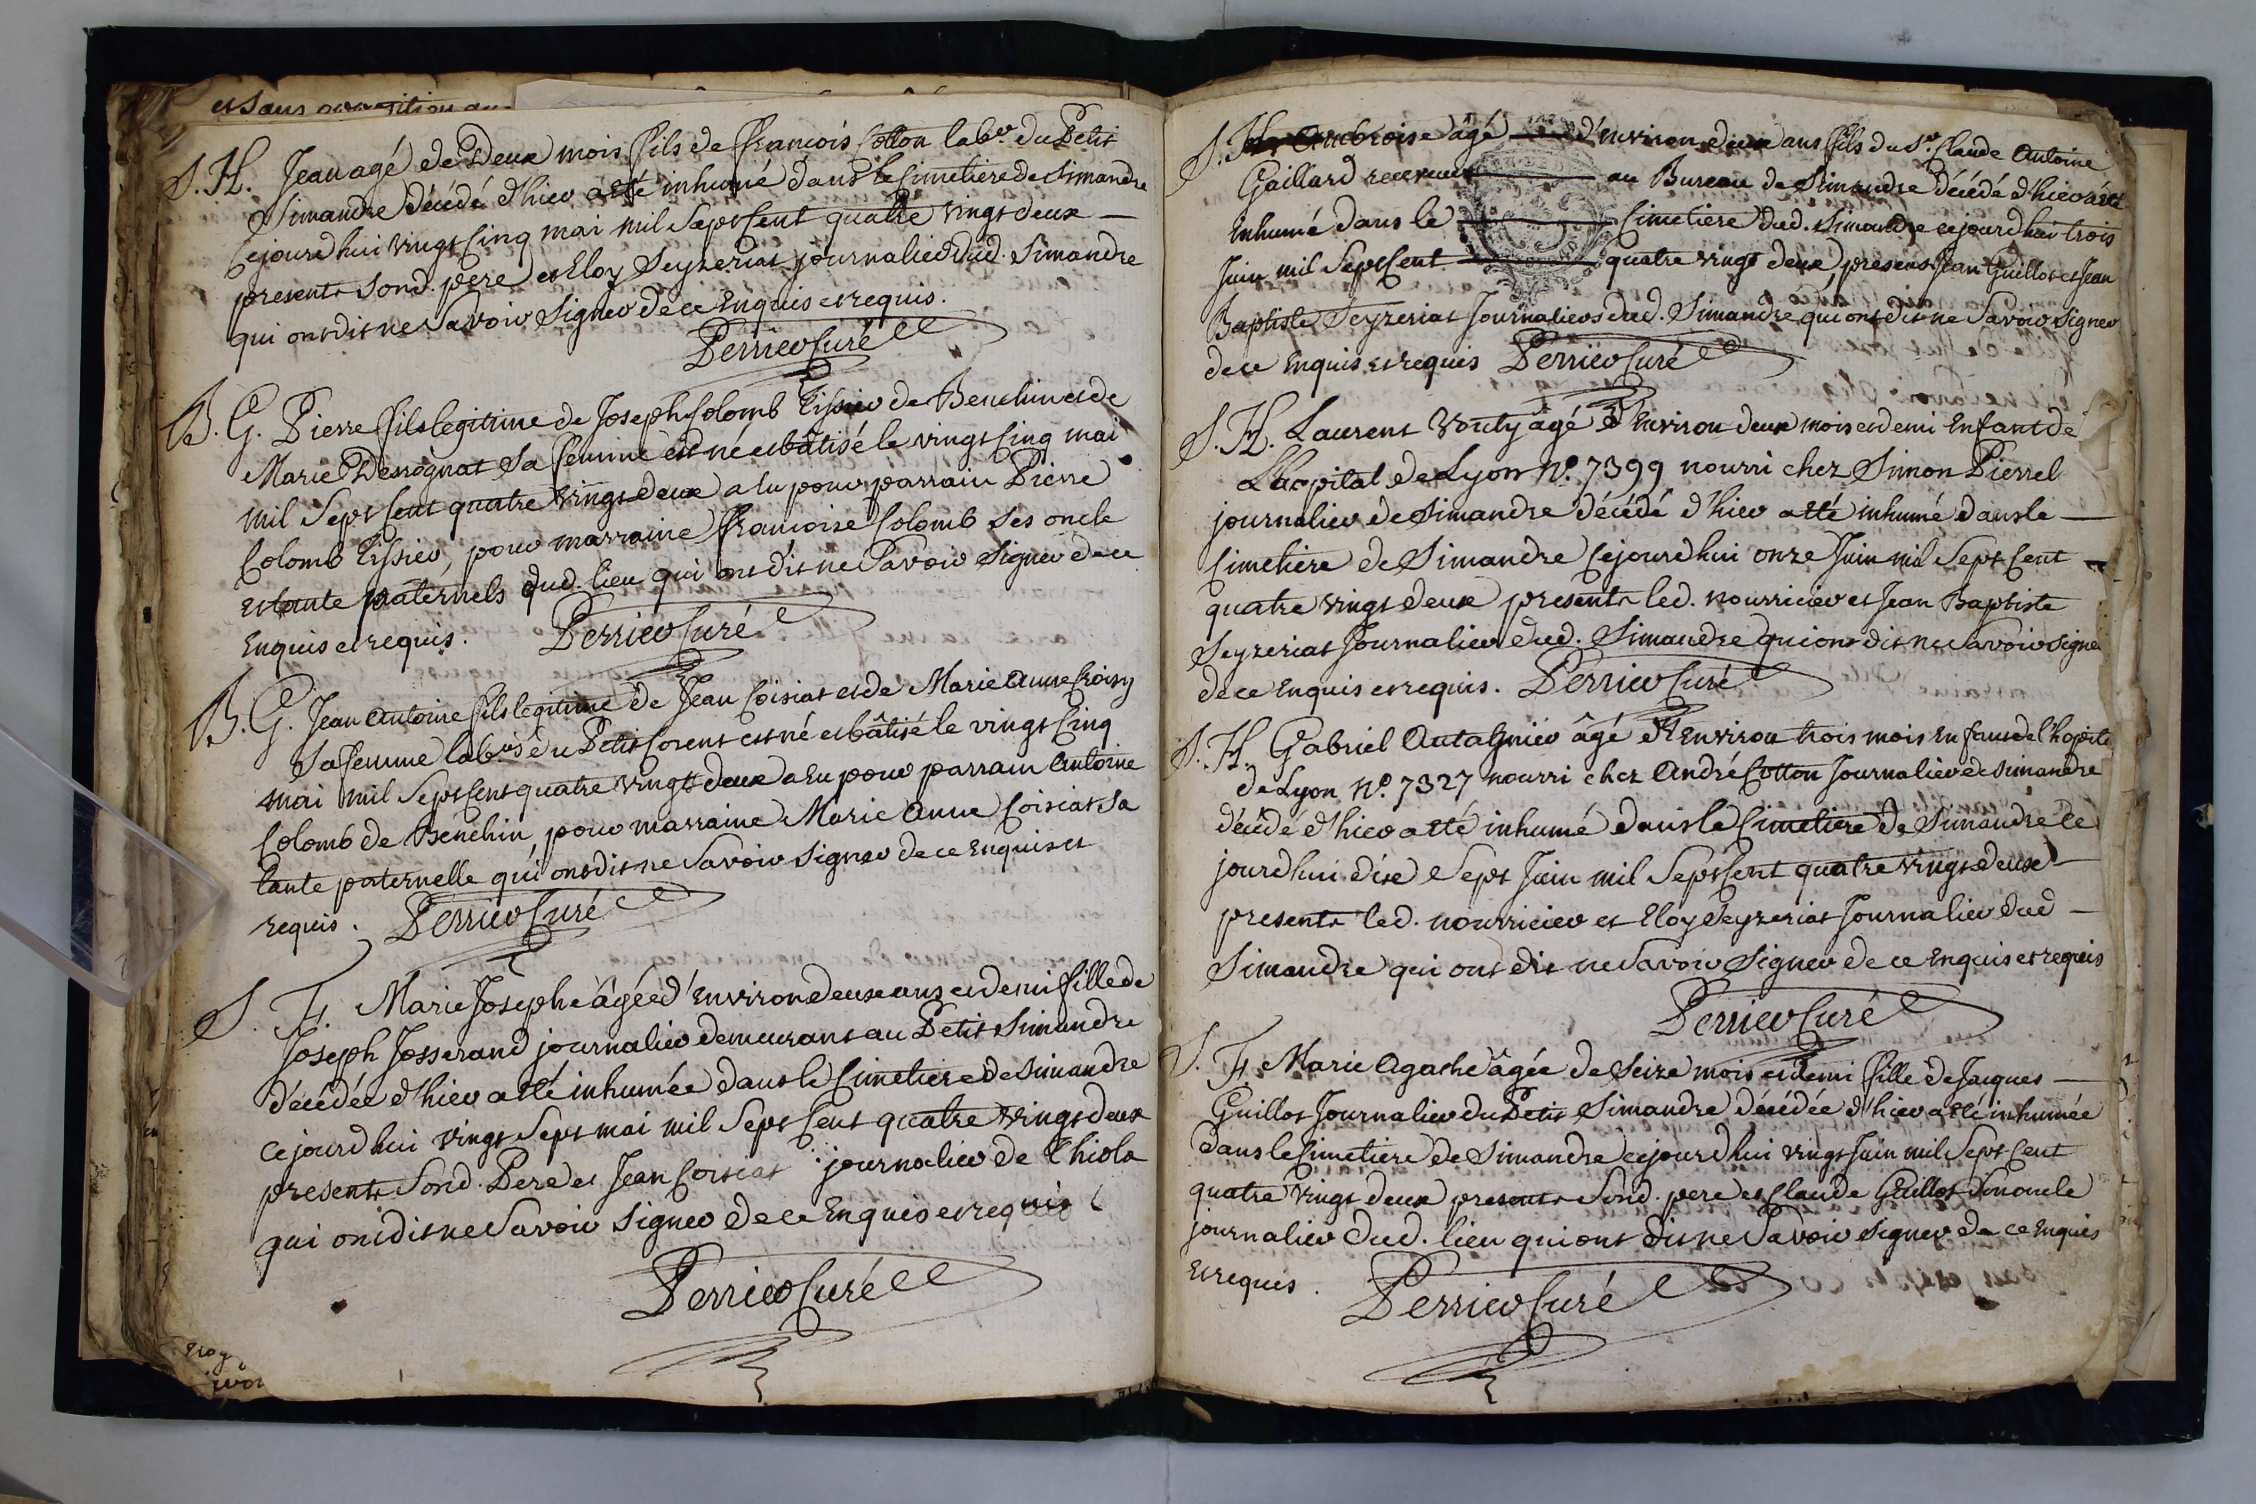 et sans opposition
S. H. Jean agé de deux mois fils de francois Cotton labr. du Petit
Simandre décédé d'hier a eté inhumé dans le Cimetiere de Simandre
Cejourd'hui vingt Cinq mai mil Sept Cent quatre vingt deux —
presents Sond. pere et Eloy Seyzeriat journalier dud. Simandre
qui ont dit ne Savoir Signer de ce Enquis et requis.
Perrier Curé
B. G. Pierre fils legitime de Joseph Colomb Tissier de Benchin et de
Marie Desrognat Sa femme est né et bâtisé le vingt Cinq mai
mil Sept Cent quatre vingt deux a Eu pour parrain Pierre
Colomb Tissier, pour marraine francoise Colomb Ses oncle
Et tante paternels dud. lieu qui ont dit ne Savoir Signer de ce
Enquis et requis. Perrier Curé
B. G. Jean Antoine fils legitime de Jean Coisiat et de Marie Anne Croisy
Sa femme labrs. du Petit Corent est né et bâtisé le vingt Cinq
mai mil Sept Cent quatre vingt deux a Eu pour parrain Antoine
Colomb de Benchin, pour marraine Marie Anne Coisiat Sa
tante paternelle qui ont dit ne Savoir Signer de ce Enquis et
requis. Perrier Curé
S. F. Marie Josephe âgée d'Environ deux ans et demi fille de
Joseph Josserand journalier demeurant au Petit Simandre
décédée d'hier a eté inhumée dans le Cimetiere de Simandre
cejourd'hui vingt Sept mai mil Sept Cent quatre vingt deux
presents Sond. Pere et Jean Coisiat journalier de Thiola
qui ont dit ne Savoir Signer de ce Enquis et requis
Perrier Curé
S. H. Ambroise âgé d'Environ deux ans fils du Sr. Claude Antoine
Gaillard receveur au Bureau de Simandre décédé d'hier a eté
inhumé dans le Cimetiere dud. Simandre cejourd'hui trois
Juin mil Sept Cent quatre vingt deux presents Jean Guillot et Jean
Baptiste Seyzeriat Journaliers dud. Simandre qui ont dit ne Savoir Signer
de ce Enquis et requis Perrier Curé
S. H. Laurent Vouty âgé d'Environ deux mois et demi Enfant de
L'hopital de Lyon No. 7399 nourri chez Simon Pierrel
journalier de Simandre décédé d'hier a eté inhumé dans le —
Cimetiere de Simandre Cejourd'hui onze Juin mil Sept Cent
quatre vingt deux presents led. nourricier et Jean Baptiste
Seyzeriat Journalier dud. Simandre qui ont dit ne Savoir Signer
de ce Enquis et requis. Perrier Curé
S. H. Gabriel âgé d'Environ trois mois Enfant de l'hopital
de Lyon No. 7327 nourri chez André Cotton Journalier de Simandre
décédé d'hier a eté inhumé dans le Cimetiere de Simandre ce
jourd'hui dix Sept Juin mil Sept Cent quatre vingt deux —
presents led. nourricier et Eloy Seyzeriat Journalier dud —
Simandre qui ont dit ne Savoir Signer de ce Enquis et requis
Perrier Curé
S. F. Marie Agathe âgée de Seize mois et demi fille de Jacques —
Guillot Journalier du Petit Simandre décédée d'hier a eté inhumée
dans le Cimetiere de Simandre cejourd'hui vingt Juin mil Sept Cent
quatre vingt deux presents Sond. pere et Claude Guillot Son oncle
journalier dud. lieu qui ont dit ne Savoir Signer de ce Enquis
Et requis. Perrier Curé